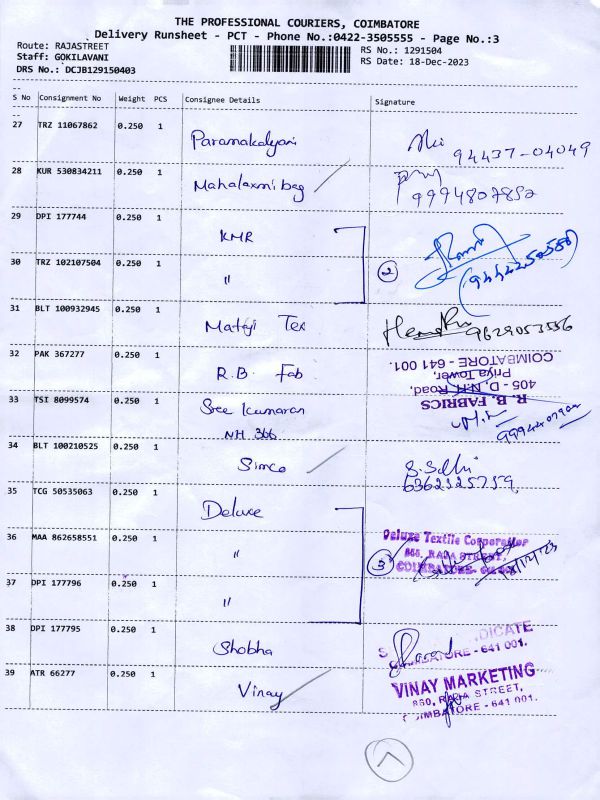 THE PROFESSIONAL COURIERS, COIMBATORE
Delivery Runsheet - PCT - Phone No.:0422-3505555 - Page No.:3
Route: RAJASTREET
RS No.: 1291504
Staff: GOKILAVANI
RS Date: 18-Dec-2023
DRS No.: DCJB129150403
S No Consignment No Weight PCS Consignee Details Signature
27 TRZ 11067862 0.250 1 Paramakalyani
94437-04049
28 KUR 530834211 0.250 1 Mahalaxmi bag
9994807852
29 DPI 177744 0.250 1 KMR
30 TRZ 102107504 0.250 1 "
2
31 BLT 100932945 0.250 1 Mataji Tex
9629053556
32 PAK 367277 0.250 1 R.B. Fab
R. B. FABRICS
405 - D, N.H. Road,
Priya Tower,
COIMBATORE - 641 001.
33 TSI 8099574 0.250 1 Sree Kumaran
NH 366
34 BLT 100210525 0.250 1 Simco
6362325759
35 TCG 50535063 0.250 1 Deluxe
36 MAA 862658551 0.250 1 "
3
Deluxe Textile Corporation
RAJA STREET,
COIMBATORE-
37 DPI 177796 0.250 1 "
38 DPI 177795 0.250 1 Shobha
COIMBATORE - 641 001.
39 ATR 66277 0.250 1 Vinay
VINAY MARKETING
860, RAJA STREET,
COIMBATORE - 641 001.